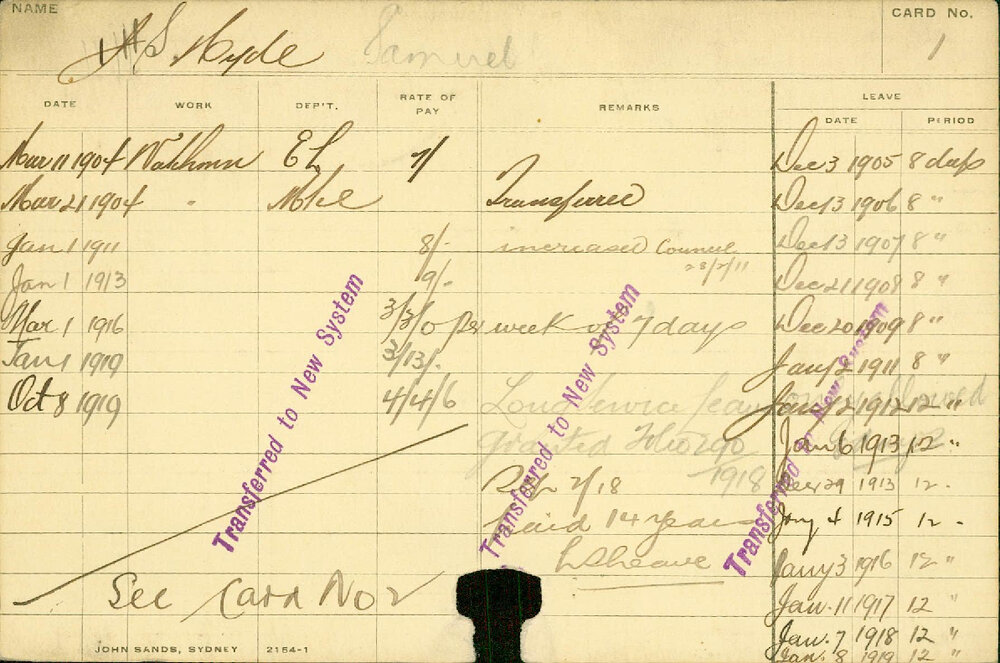 NAME
CARD No.
S Hyde Samuel
1
DATE WORK DEP'T. RATE OF PAY REMARKS LEAVE
DATE PERIOD
Mar 11 1904 Watchman E L 7/ Dec 3 1905 8 days
Mar 21 1904 " Transferred Dec 13 1906 8 "
Jan 1 1911 8/- increased Council Dec 13 1907 8 "
28/2/11
Jan 1 1913 9/- Dec 21 1908 8 "
Mar 1 1916 3/3/0 per week of 7 days Dec 20 1909 8 "
Jan 1 1919 3/13/- Jany 2 1911 8 "
Oct 8 1919 4/4/6 Long Jany 2 1912 12 "
granted Jan 6 1913 12 "
1918 29 1913 12 "
7/18
paid 14 years Jany 4 1915 12 "
leave Jany 3 1916 12 "
See Card No 2 Jan. 11 1917 12 "
Jan. 7 1918 12 "
Jan. 8 1919 12 "
Transferred to New System
Transferred to New System
Transferred to New System
JOHN SANDS, SYDNEY 2154-1